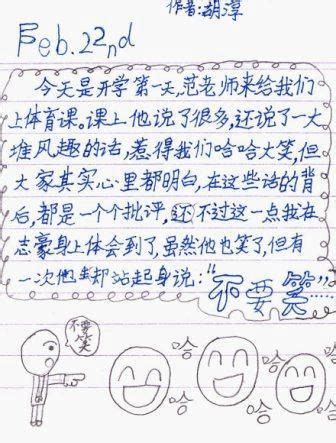 作者:胡淳
Feb.22nd
今天是开学第一天,范老师来给我们
上体育课。课上他说了很多,还说了一大
堆风趣的话,惹得我们哈哈大笑,但
大家其实心里都明白,在这些话的背
后,都是一个个批评,还不过这一点我在
志豪身上体会到了,虽然他也笑了,但有
一次他却站起身说:“不要笑……
不要
笑
哈
哈
哈
哈
哈
哈